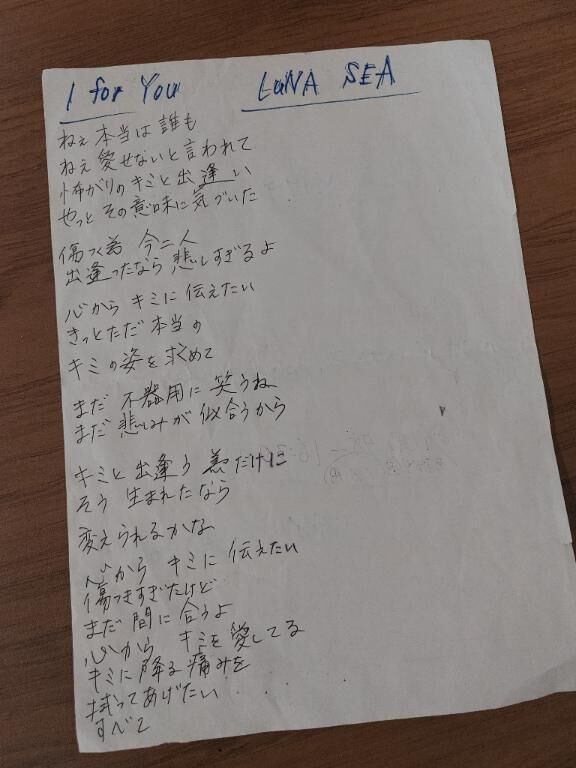 I for You LUNA SEA
ねぇ本当は誰も
ねぇ愛せないと言われて
怖がりのキミと出逢い
やっとその意味に気づいた
傷つく為 今二人
出逢ったなら 悲しすぎるよ
心から キミに 伝えたい
きっとただ 本当の
キミの姿を求めて
まだ 不器用に 笑うね
まだ 悲しみが 似合うから
キミと出逢う 為だけに
そう 生まれたなら
変えられるかな
心から キミに 伝えたい
傷つきすぎたけど
まだ 間に合うよ
心から キミを愛してる
キミに降る痛みを
拭ってあげたい
すべて